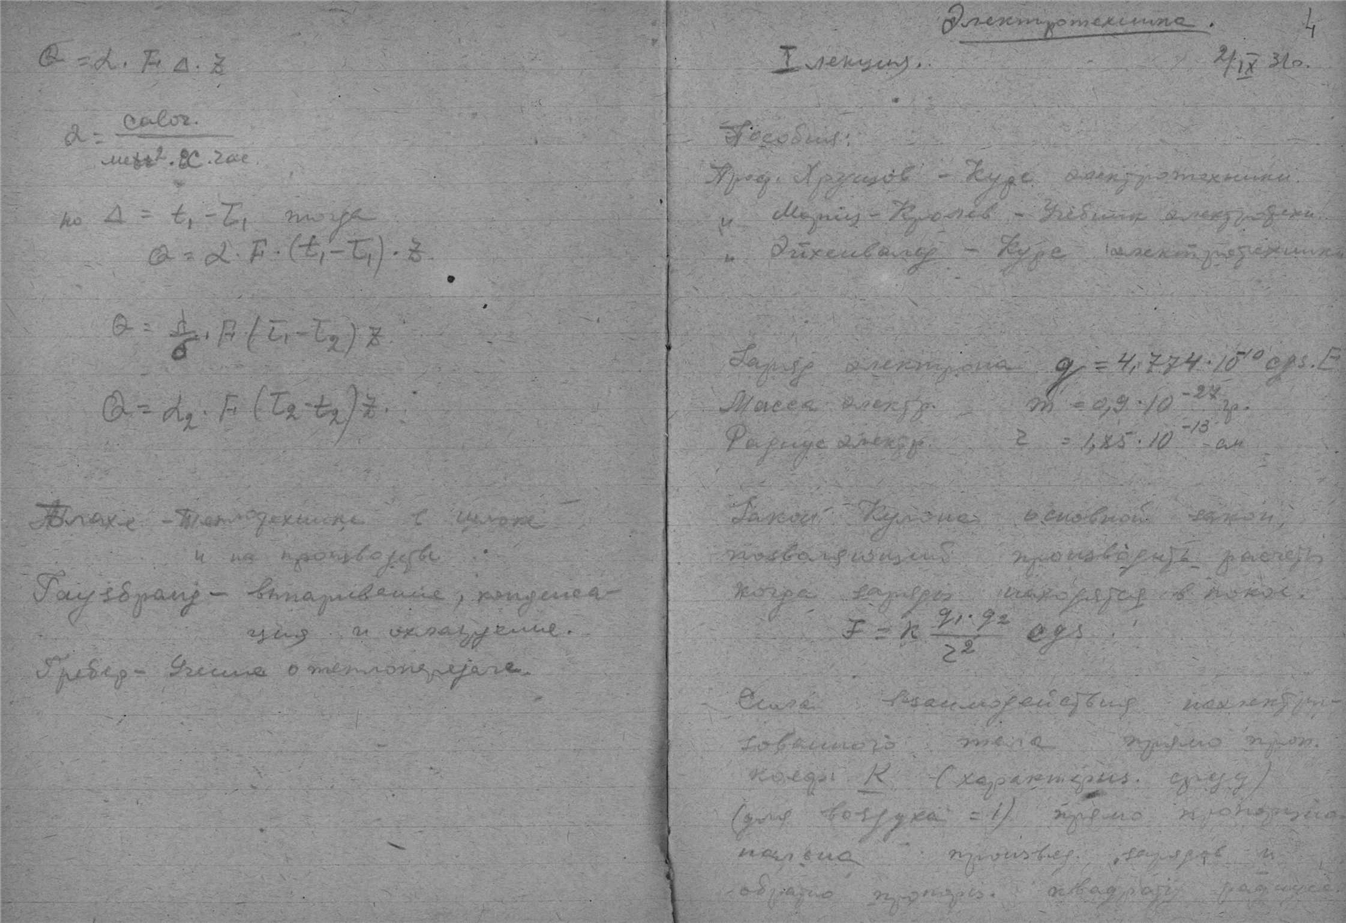 Q = α · F Δ · Z
α = calor. / метр² · °C · час.
но Δ = t₁ – τ₁ тогда
Q = α · F · (t₁ – τ₁) · Z
Q = λ/δ · F (τ₁ – τ₂) Z
Q = α₂ · F (τ₂ – t₂) Z.
– Теплотехника в
и на производстве
Гаузбранд – выпаривание, конденса-
ция и охлаждение.
Гребер – Учение о теплопередаче.
Электротехника. 4
I лекция. 2/IX 31г.
Пособия:
Проф. Хрущов – Курс электротехники.
" – Кролев – Учебник электротехн.
" Эйхенвальд – Курс электротехники
Заряд электрона q = 4,774 · 10⁻¹⁰ cgs. E
Масса электр. m = 0,9 · 10⁻²⁷ гр.
Радиус электр. r = 1,85 · 10⁻¹³ см
Закон Кулона основной закон,
позволяющий производить расчеты
когда заряды находятся в покое.
F = k q₁·q₂ / r² cgs
Сила взаимодействия наэлектри-
зованного тела прямо проп.
коэф. K (характериз. среду)
(для воздуха = 1) прямо пропорцио
нальна произвед. зарядов и
обратно пропорц. квадрату